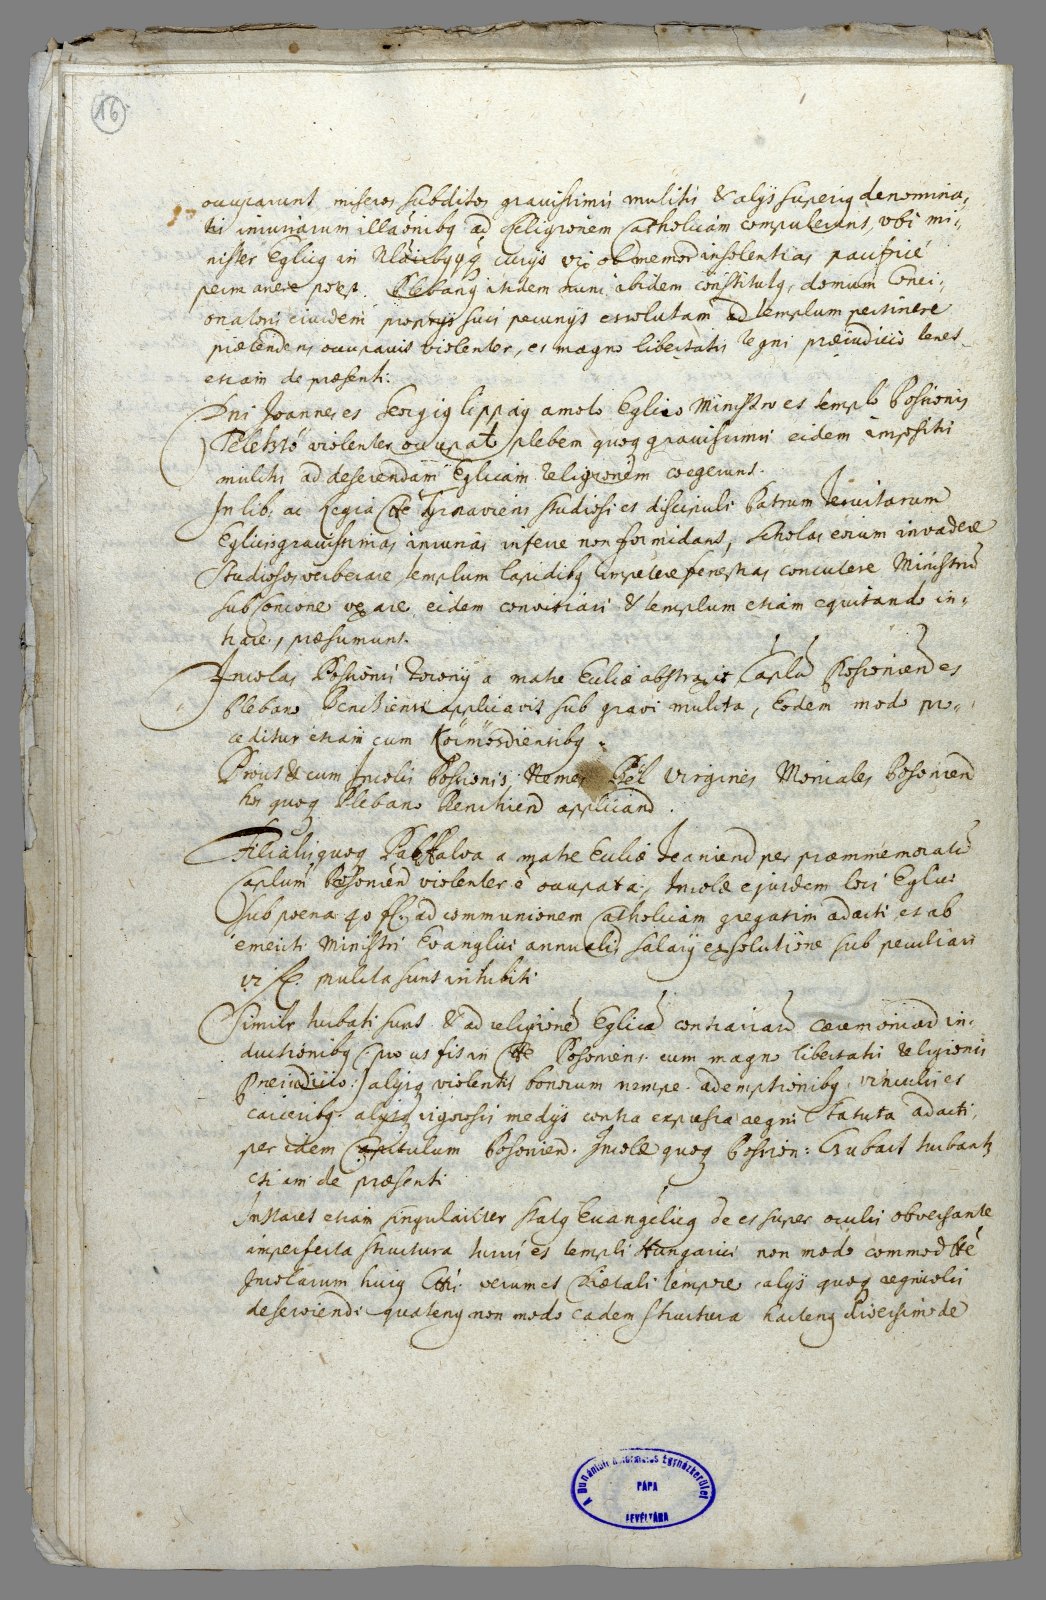 16
occuparunt miseros subditos gravissimis mulctis & alijs superiq denomina„
tis iniuriarum illaōnibq ad Religionem Catholicam compulerunt, vbi mi„
nister Eglicq in cuiqs vix ob memor insolentias pacificè
permanere potest. Plebanq itidem nunc ibidem constitutq, domum Conci„
onatoris eiusdem proprijs suis pecunijs exsolutam ad templum pertinere
prætendens occupavit violenter, et magno libertatis regni præiudicio tenet
etiam de præsenti.
Dni Joannes et Georgiq Lippay amoto Eglico Ministro et templo Possionis
violenter occupato plebem quoq gravissimis eidem impositis
mulctis ad deserendam Eglicam religionem coegerunt.
In lib: ac Regia Ctte Tyrnaviens studiosi et discipuli Patrum Jesuitarum
Eglicis gravissimas iniurias inferre non formidant, Scholas enim invadere
Studiosos verberare templum lapidibq impetere fenestras concutere Ministrū
sub concione vexare, eidem convitiari & templum etiam equitando in„
trare, præsumunt.
Incolas Possionis a matre Eccliæ abstraxit Caplū Posoniens et
Plebano applicavit sub gravi mulcta, Eodem modo pro„
ceditur etiam cum
Prout & cum Incolis Possionis Nemes Virgines Moniales Posoniens
hos quoq Plebano applicand.
Filialis quoq a matre Eccliæ per præmemoratū
Caplum Posoniens violenter ē occupata, Incolæ ejusdem loci Eglici
sub poena 40 fl. ad communionem Catholicam gregatim adacti et ab
emeriti Ministri Evanglici annualis salarij exsolutione sub peculiari
vi fl. mulcta sunt inhibiti
Similr turbati sunt & ad religionē Eglicæ contrariarū cæremoniarū in„
ductionibq (prout fit in Ctte Posoniens. cum magno libertatis religionis
Præiudicio:) alijsq violentis bonorum nempe ademptionibq, vinculis et
carceribq. alijsq rigorosis medijs contra expressa regni Statuta adacti,
per idem Capitulum Posoniens. Incolæ quoq Possion: turbantr
etiam de præsenti
Instaret etiam singulariter statq Evangelicq de et super oculis obversante
imperfecta structura turris et templi Hungarici non modo commoditē
Incolarum huiq Cttis verum et Diætali tempore alijs quoq regnicolis
deserviendi quatenq non modo eadem structura hactenq diversimode
A Dunántúli Református Egyházkerület
PÁPA
LEVÉLTÁRA